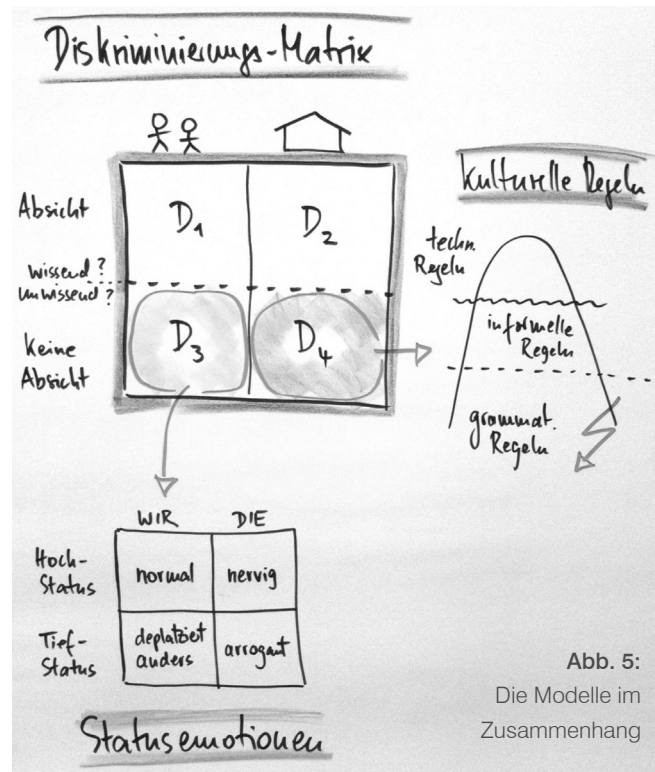 Diskriminierungs-Matrix
Absicht
D1
D2
wissend?
unwissend?
Keine
Absicht
D3
D4
Kulturelle Regeln
techn.
Regeln
informelle
Regeln
grammat.
Regeln
WIR
DIE
Hoch-
Status
normal
nervig
Tief-
Status
deplatziert
anders
arrogant
Statusemotionen
Abb. 5:
Die Modelle im
Zusammenhang